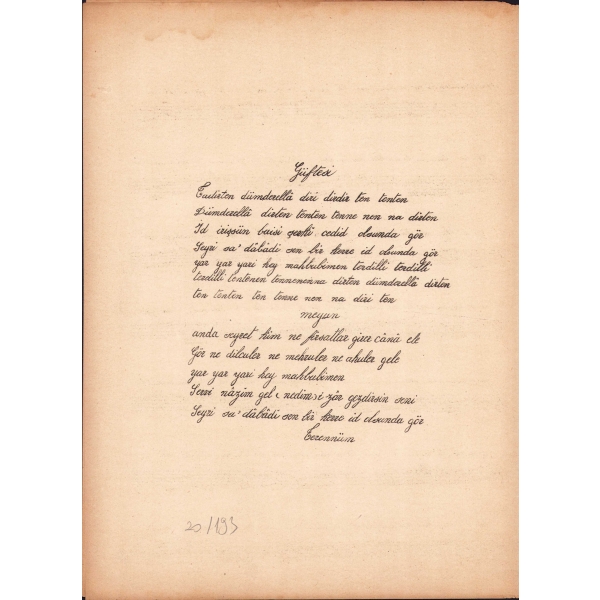 Güftesi
Tadirten dümderellâ diri dirdir ten tenten
Dümderellâ dirten tenten tenne nen na dirten
Id irişsün baisi şevki cedid olsunda gör
Seyri sa'dâbâdi sen bir kerre id olsunda gör
yar yar yari hey mahbubümen terdilli terdilli
terdilli tentenen tennenenna dirten dümderellâ dirten
ten tenten ten tenne nen na diri ten
meyan
anda seyret kim ne fırsatlar girer câna ele
Gör ne dilcular ne mehruler ne ahuler gele
yar yar yari hey mahbubümen
Serri nâzim gel (nedim) i zâr gezdirsin seni
Seyri sa'dâbâdi sen bir kerre id olsunda gör
Terennüm
20/193